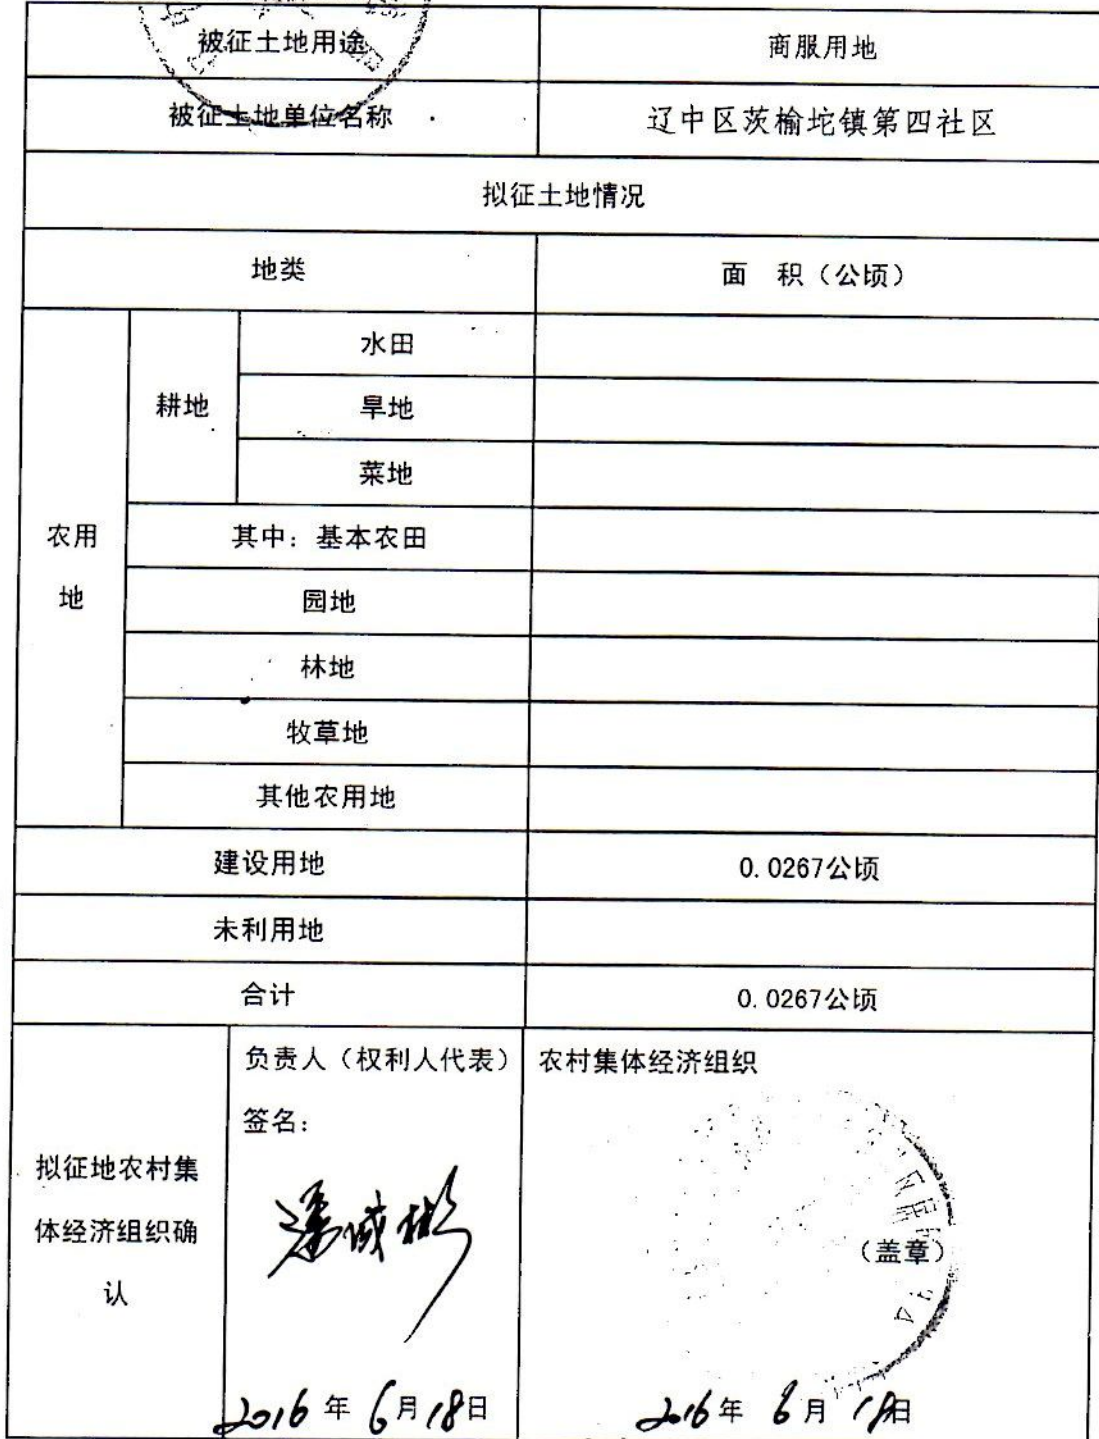 被征土地用途 商服用地
被征土地单位名称 辽中区茨榆坨镇第四社区
拟征土地情况
地类 面 积（公顷）
农用地 耕地 水田
旱地
菜地
其中：基本农田
园地
林地
牧草地
其他农用地
建设用地 0.0267公顷
未利用地
合计 0.0267公顷
拟征地农村集
体经济组织确
认
负责人（权利人代表）
签名：
2016年6月18日
农村集体经济组织
（盖章）
2016年6月18日